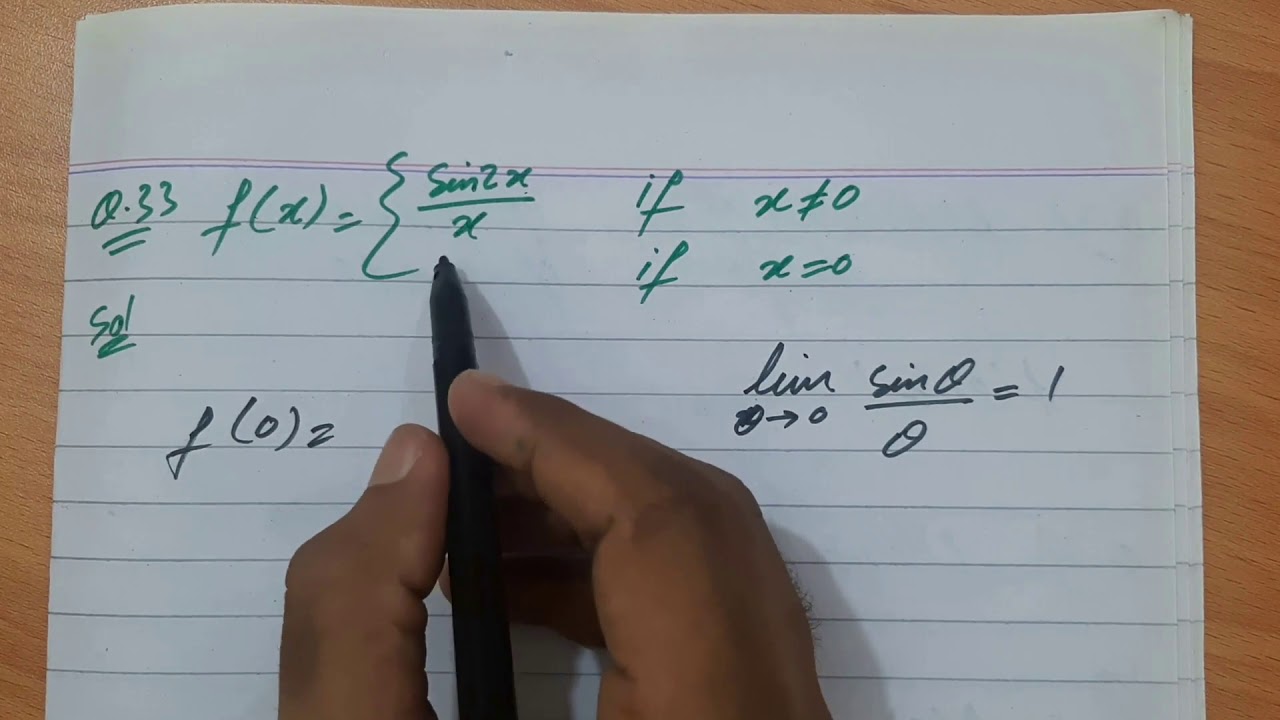 Q.33 f(x) = { sin2x / x if x ≠ 0
if x = 0
Sol
lim θ→0 sinθ / θ = 1
f(0) =